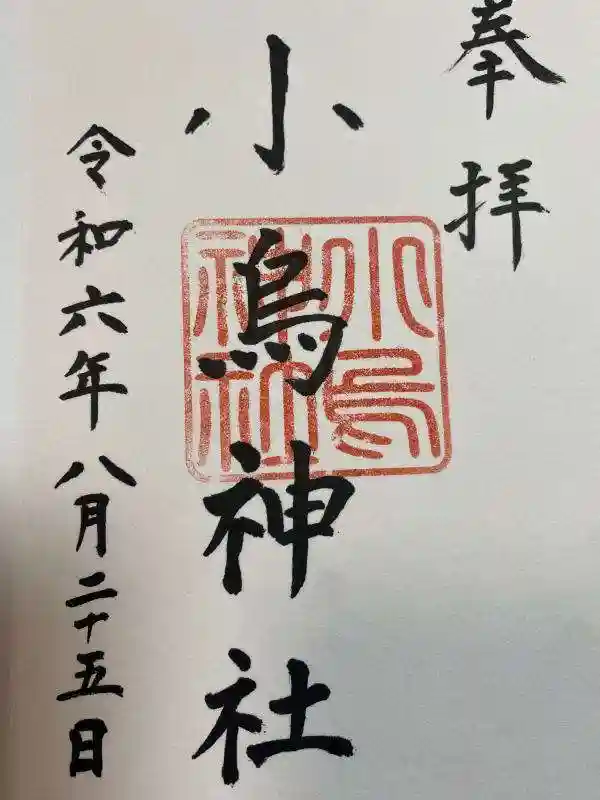 奉拝
小烏神社
令和六年八月二十五日
小烏
神社